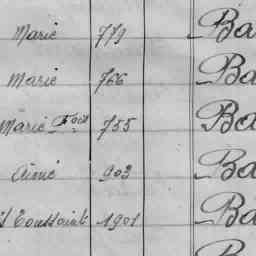 Marie 779 Ba
Marie 766 Ba
Marie Fois 755 Ba
Aimé 903 Ba
Toussaint 1901 Ba